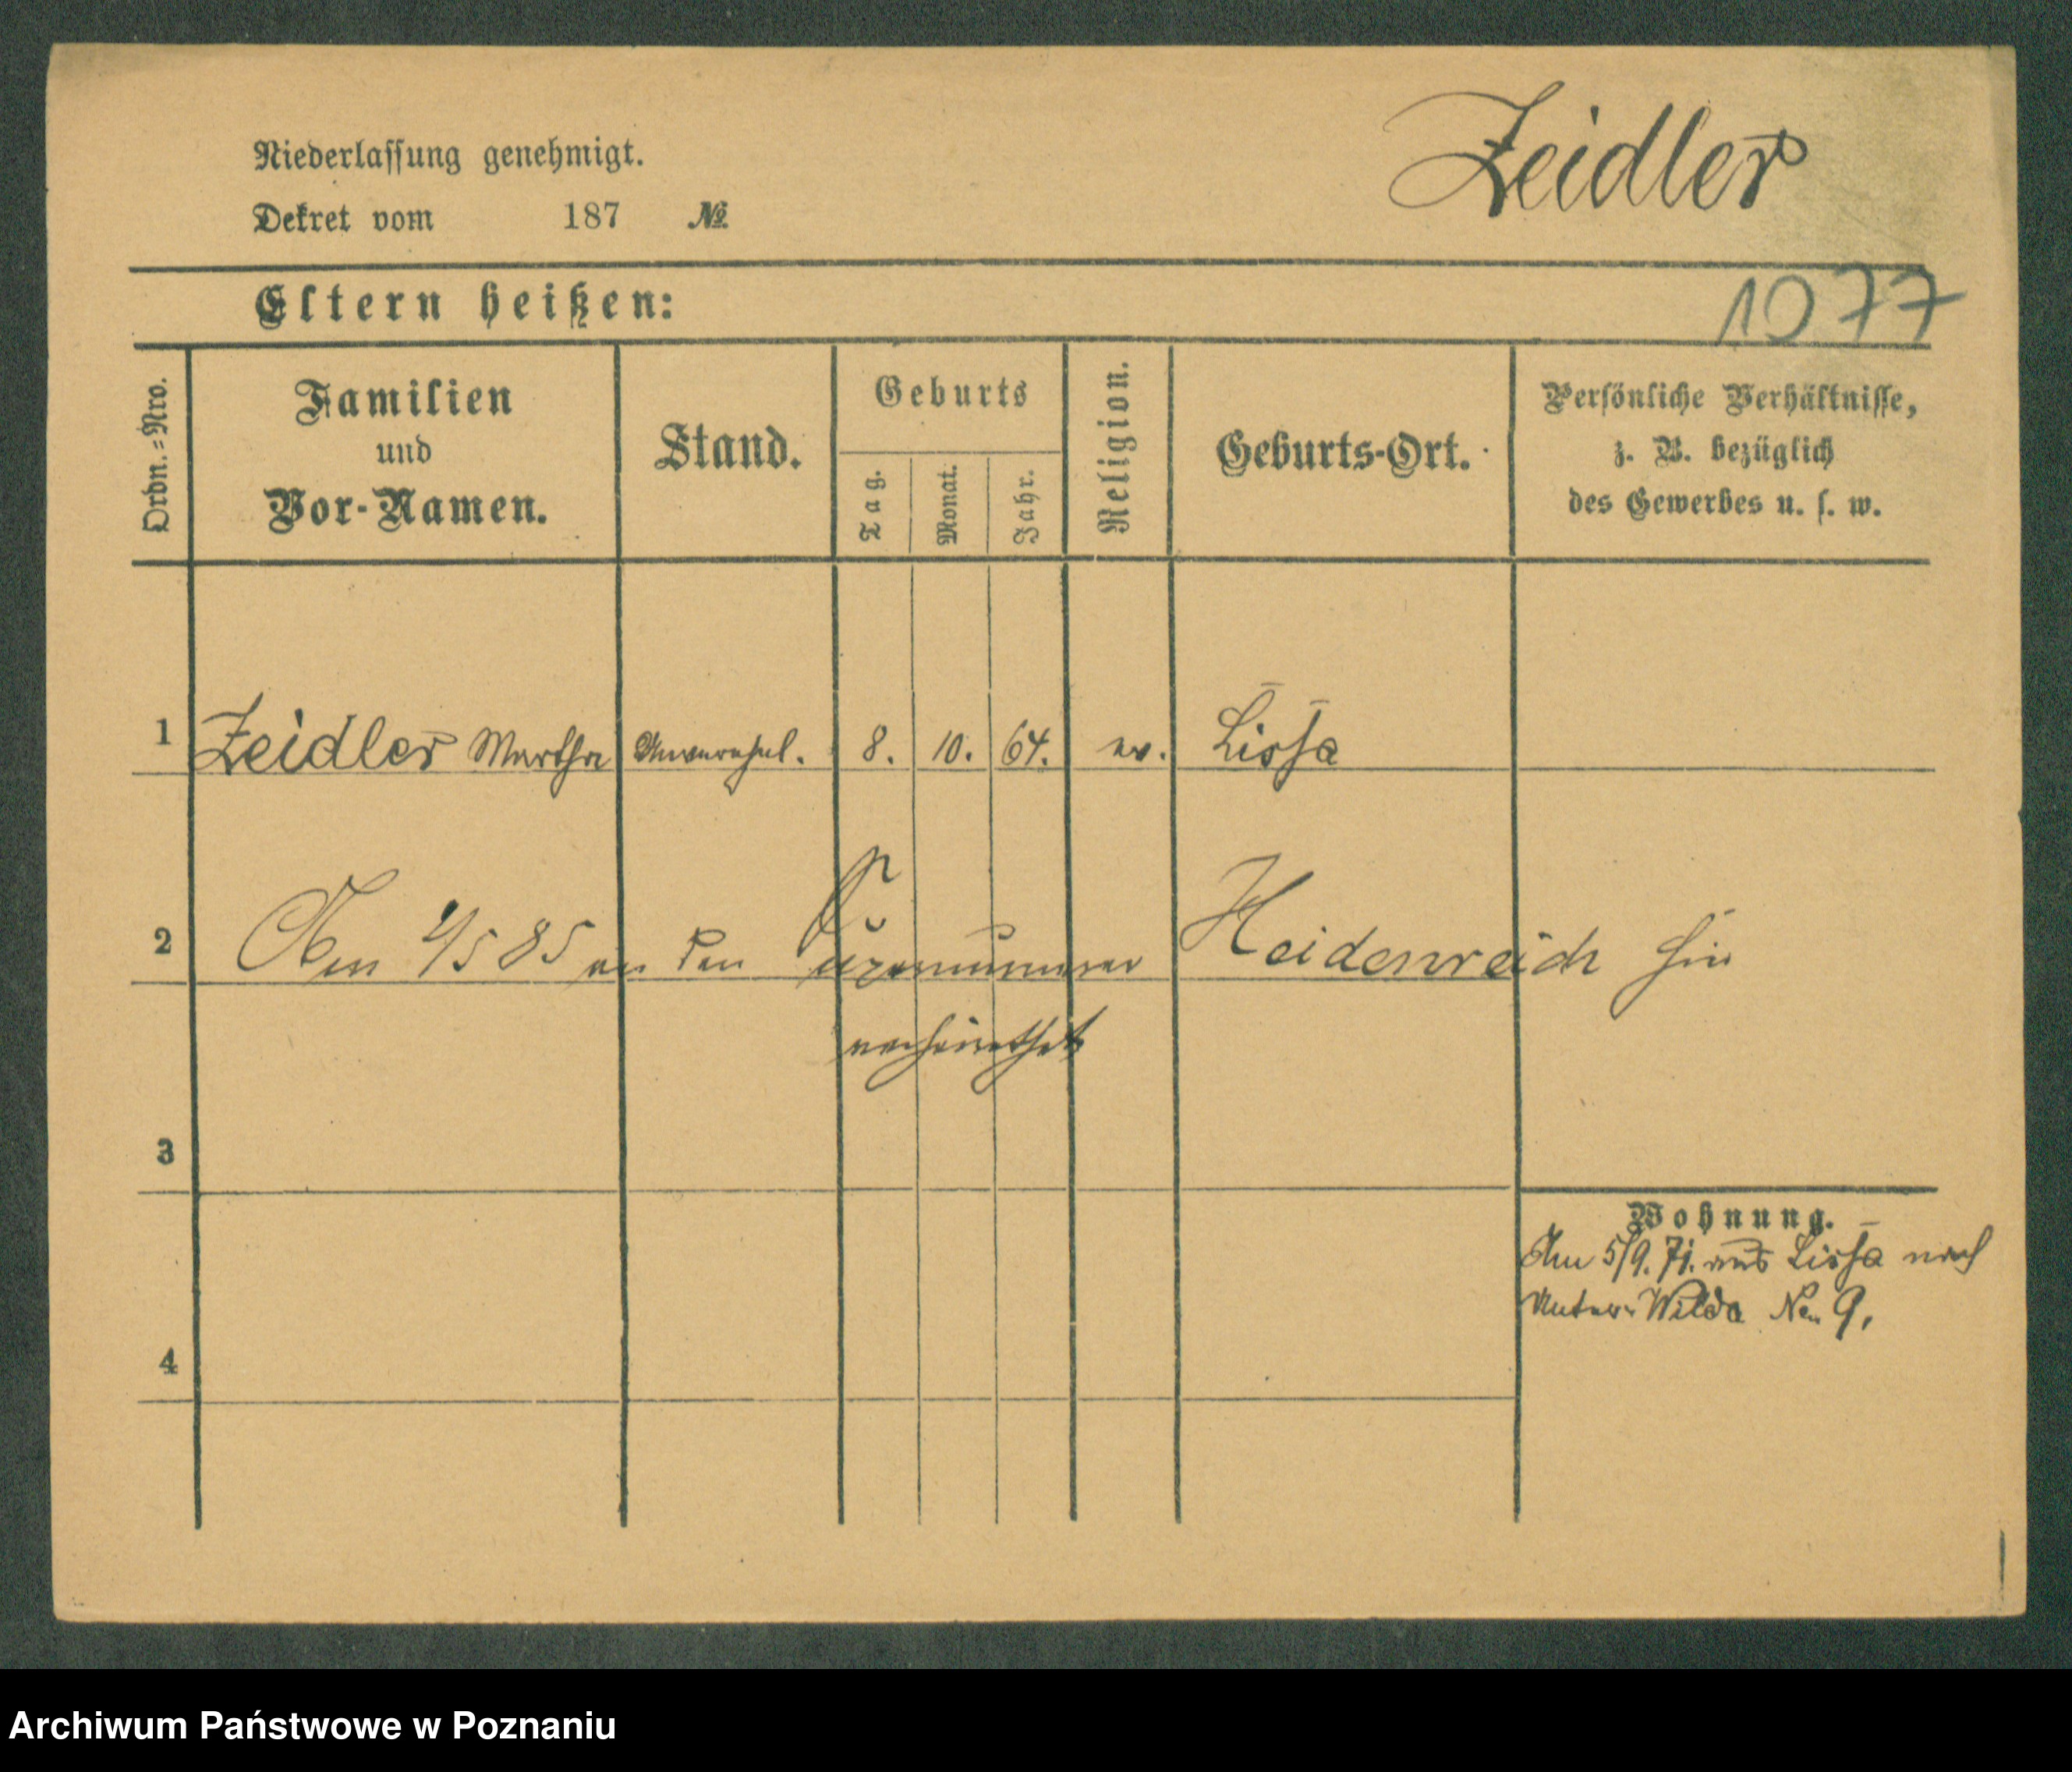 Zeidler
Niederlassung genehmigt.
Dekret vom 187 №
Eltern heißen:
1077
Ordn.=Nro.
Familien
und
Vor-Namen.
Stand.
Geburts
Tag.
Monat.
Jahr.
Religion.
Geburts-Ort.
Persönliche Verhältnisse,
z. B. bezüglich
des Gewerbes u. s. w.
1 Zeidler Martha Unverehel. 8. 10. 64. ev. Lissa
2 Am 4/5 85 an den Heidenreich hier
verheirathet
3
Wohnung.
Am 5/9. 71. aus Lissa nach
Unter-Wilda No 9.
4
Archiwum Państwowe w Poznaniu